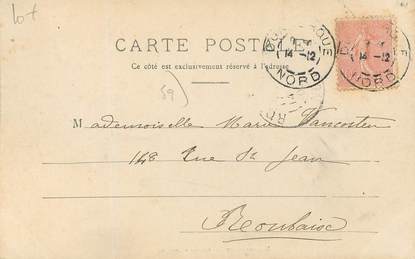 lot
CARTE POSTALE
Ce côté est exclusivement réservé à l'adresse
14 -12
NORD
14 -12
NORD
59)
Mademoiselle Marie Vancosten
148 Rue St Jean
Roubaix